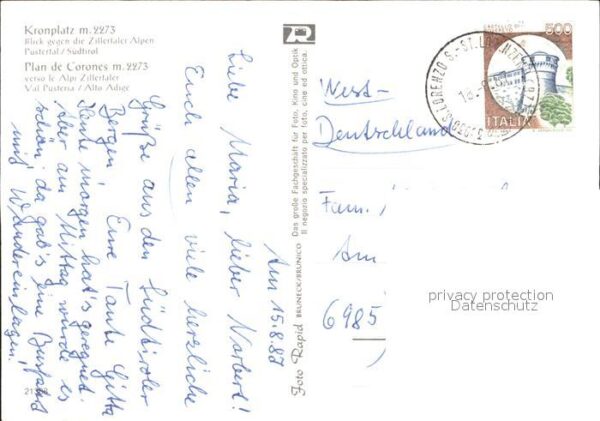 Kronplatz m. 2273
Blick gegen die Zillertaler Alpen
Pustertal / Südtirol
Plan de Corones m. 2273
verso le Alpi Zillertaler
Val Pusteria / Alto Adige
Am 15.8.87
Liebe Maria, lieber Norbert!
Euch allen viele herzliche
Grüße aus den Südtiroler
Bergen Eure Tante Gitta
Heute morgen hat's geregnet.
Aber am Mittag wurde es
schön, da gab's eine Busfahrt
und Wandereinlagen!
Foto Rapid BRUNECK/BRUNICO
Das große Fachgeschäft für Foto, Kino und Optik
Il negozio specializzato per foto, cine ed ottica.
R
500
ITALIA
S. LORENZO S. - ST. LORENZEN
39030
West-
Deutschland
Fam.
Am
6985
privacy protection
Datenschutz